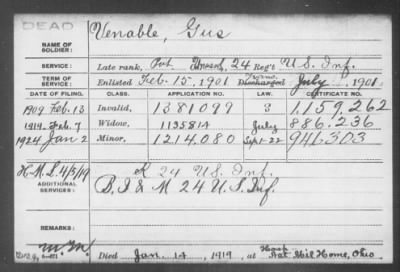 DEAD
Venable, Gus
NAME OF SOLDIER:
SERVICE: Late rank, Pvt Unass, 24 Reg't U.S. Inf.
TERM OF SERVICE: Enlisted Feb. 15, 1901 Trans. Discharged July, 1901
DATE OF FILING. CLASS. APPLICATION NO. LAW. CERTIFICATE NO.
1909 Feb. 13 Invalid, 1381099 3 1,159,262
1919 Feb. 7 Widow, 1135814 July 886.236
1924 Jan 2 Minor, 1214,080 Sept-22 946303
H.M.L. 4/5/19 K 24 U.S. Inf.
ADDITIONAL SERVICES: B, I & M 24 U.S. Inf.
REMARKS:
Died Jan. 14, 1919, at Hosp. Nat Mil Home, Ohio